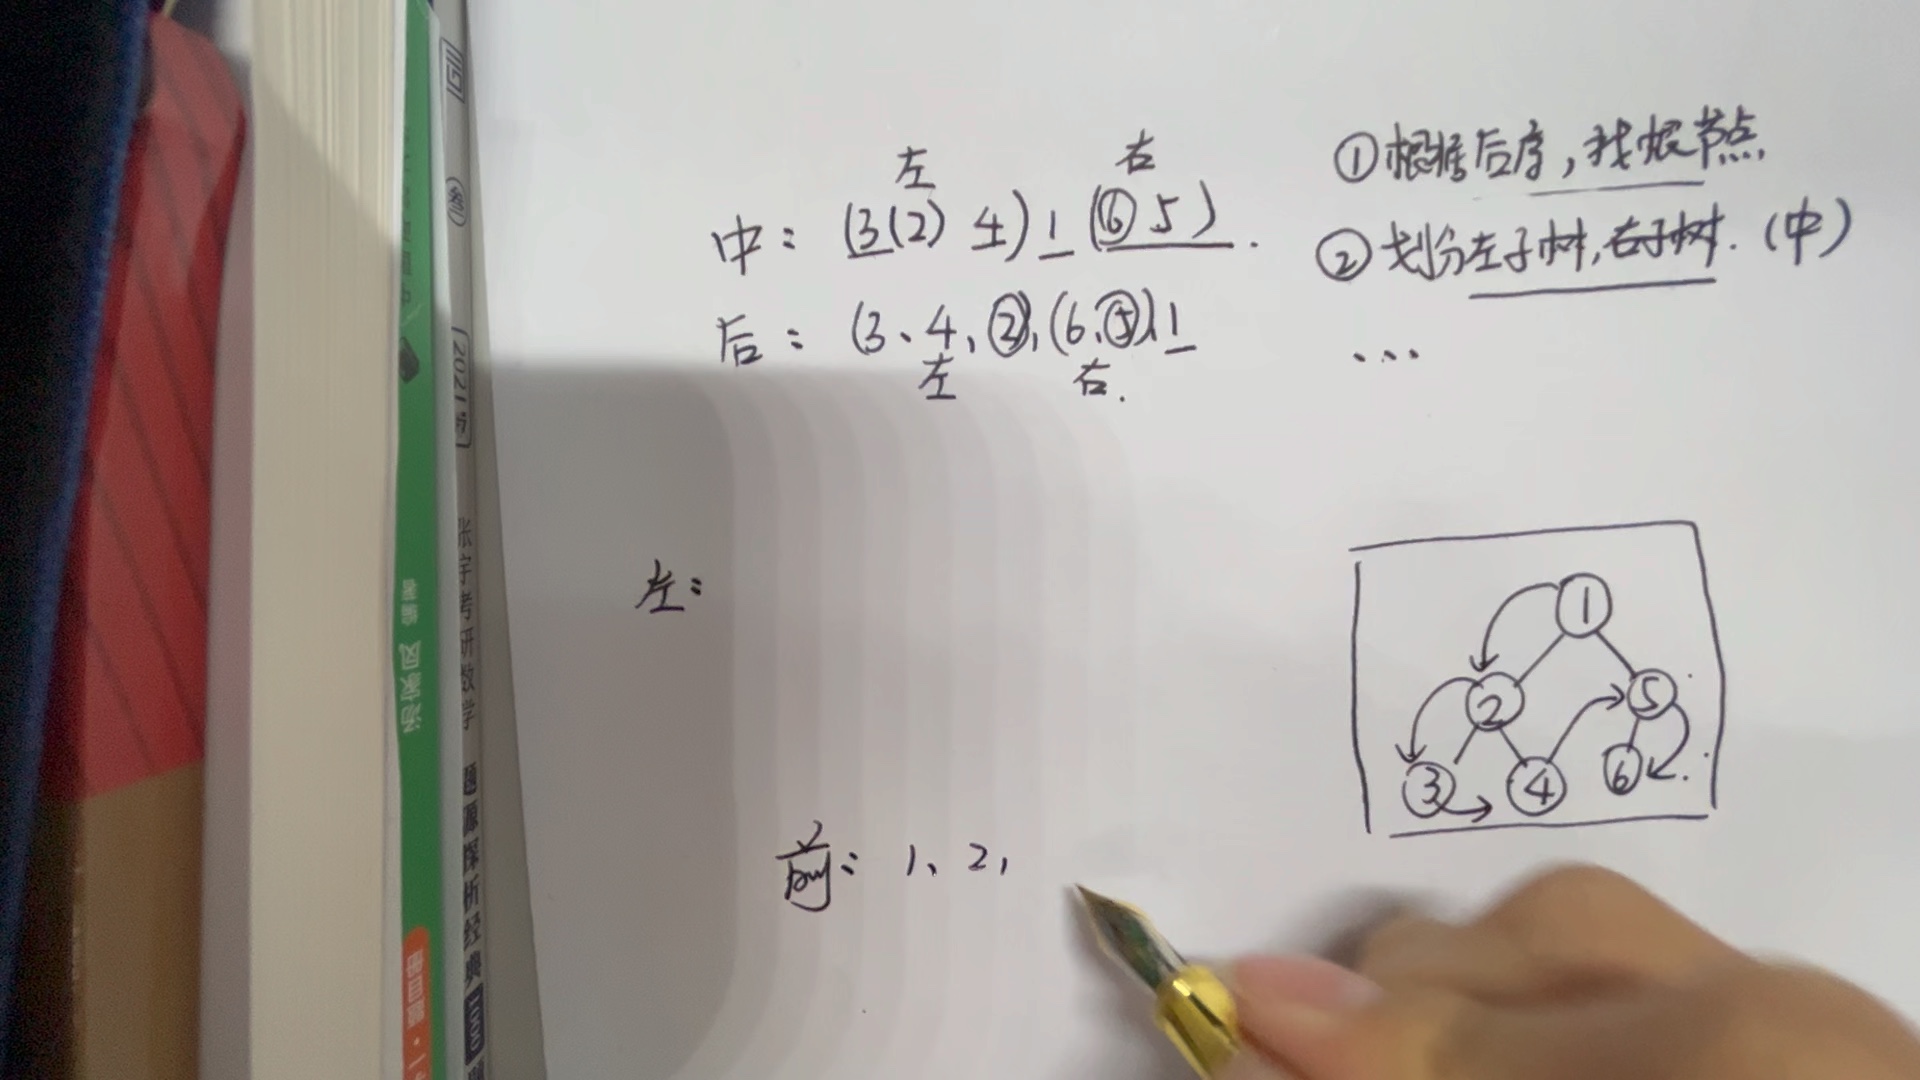 左 右
中：(3(2) 4) 1 (⑥ 5).
后：(3、4、②),(6、⑤)、1
左 右.
①根据后序，找根节点
②划分左子树,右子树.(中)
...
左：
1
2 5
3 4 6
前：1、2，
2021
张宇考研数学题源探析经典1000题
汤家凤 编著
题目册